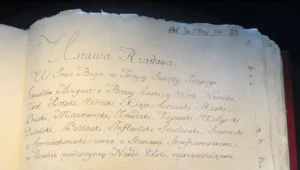 Ustawa Rządowa.
W Imie Boga w Troycy Swiętey Iedynego
Stanisław August z Bożey Łaski y Woli Narodu
Krol Polski, Wielki Xiąże Litewski, Ruski,
Pruski, Mazowiecki, Żmudzki, Kijowski, Wołyński,
Podolski, Podlaski, Inflantski, Smoleński, Siewierski
y Czerniechowski; wraz z Stanami Skonfederowanemi
w liczbie podwoyney Narod Polski reprezentuiącemi.